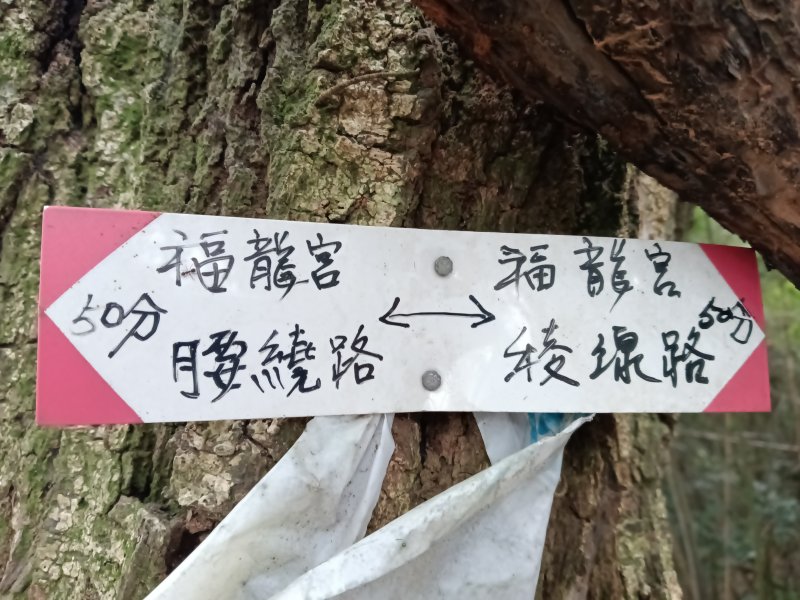 福龍宮
50分
腰繞路
福龍宮
50分
綾線路